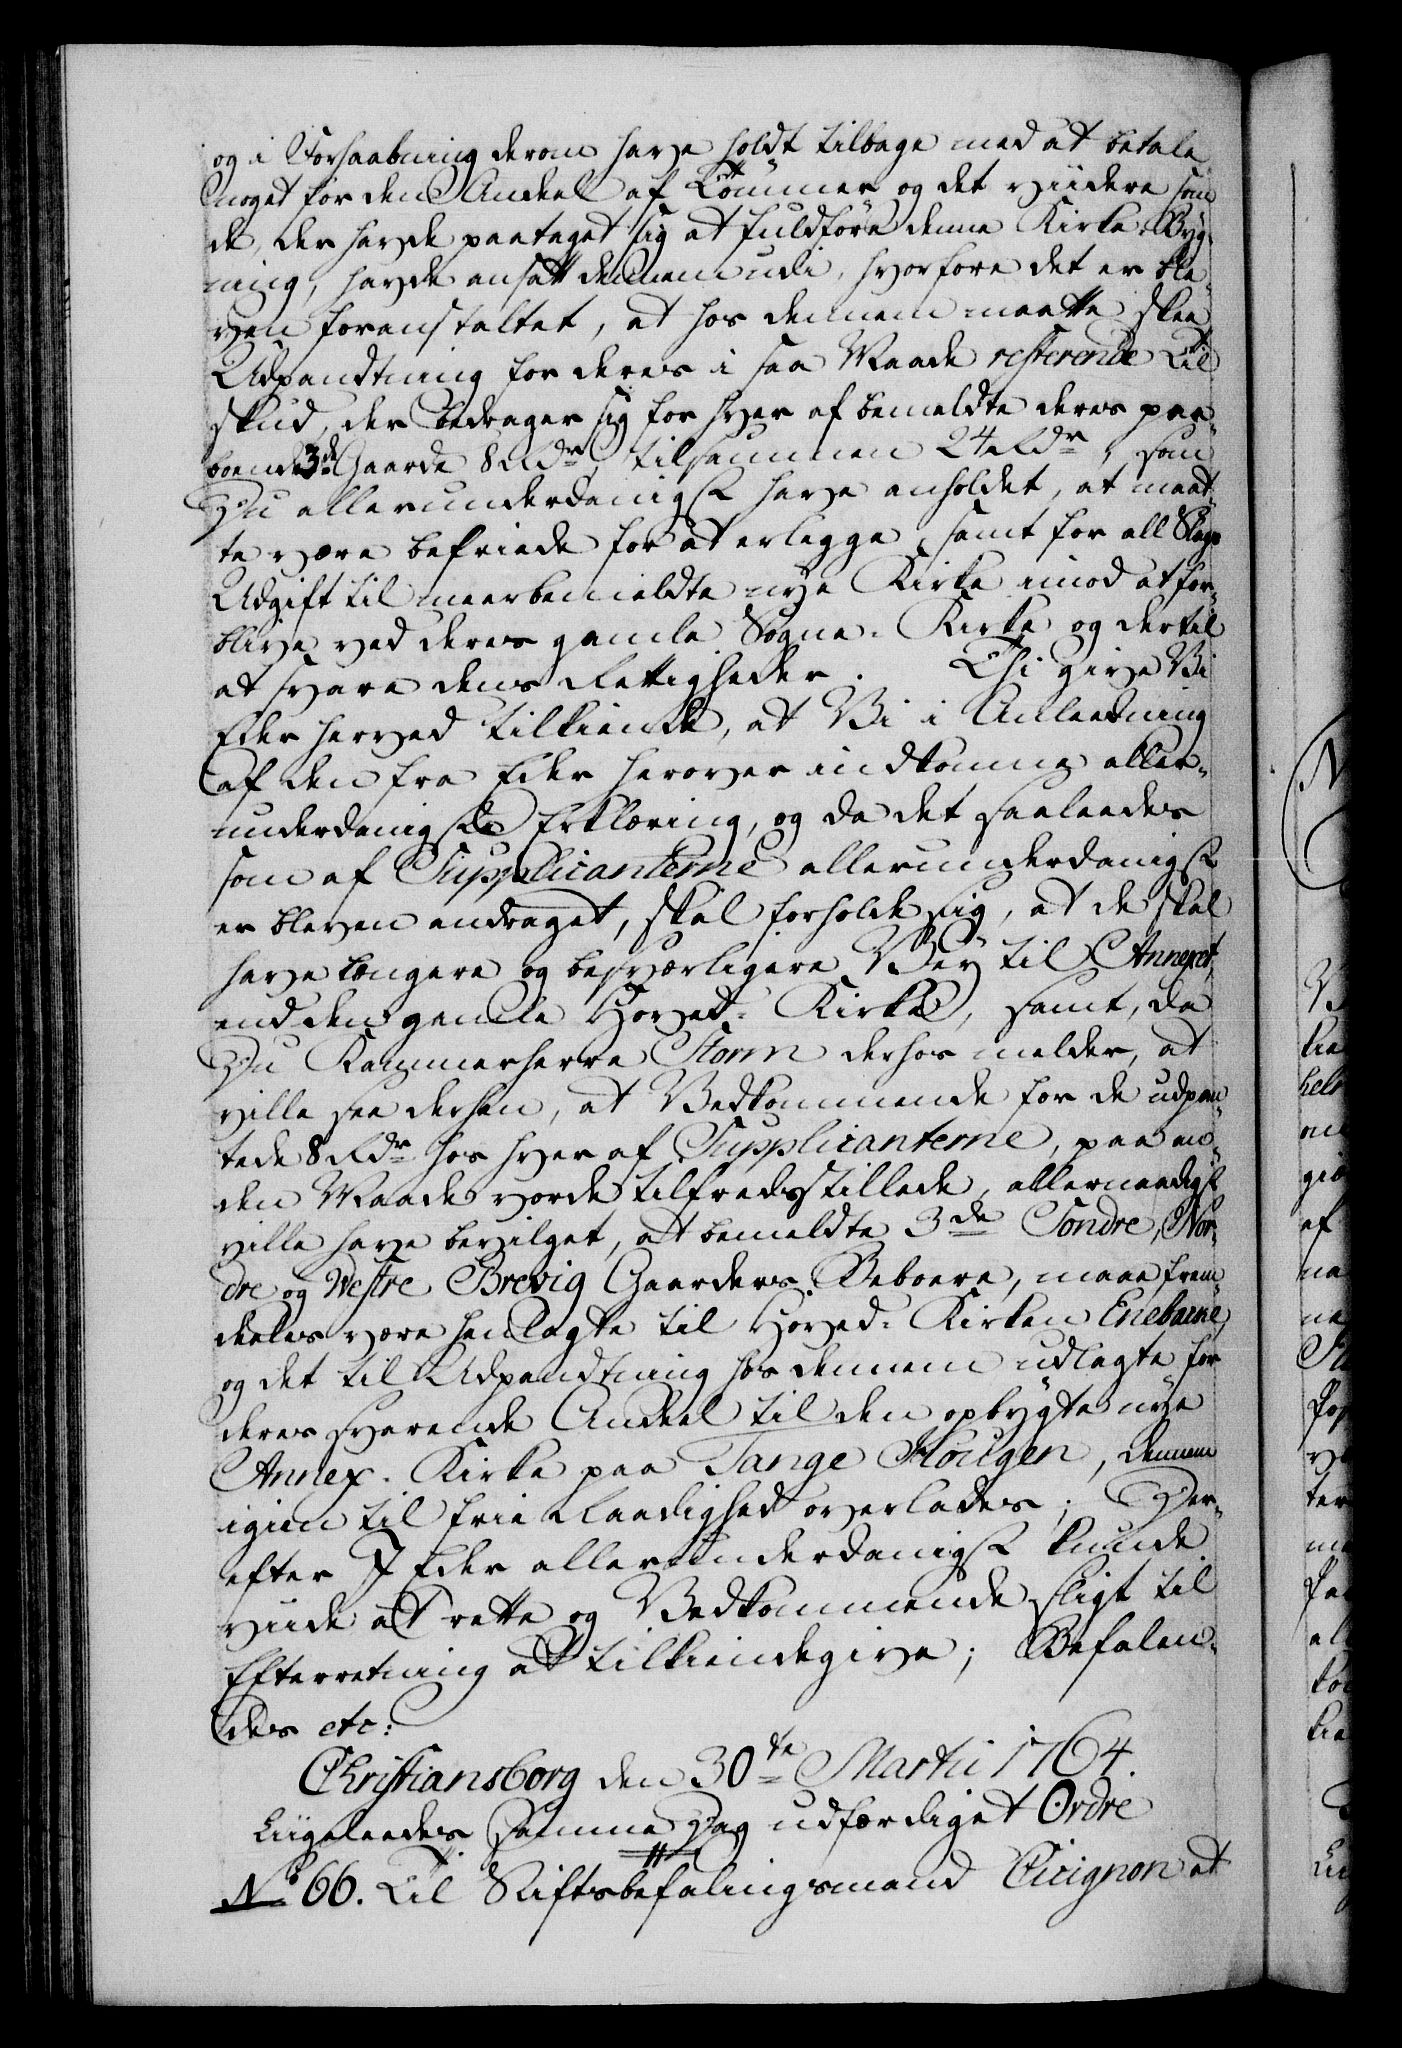 og i Forhaabning derom have holdt tilbage med at betale
noget for den Andeel af Tømmer og det viidere som
de, der havde paataget sig at fuldføre denne Kirke-Byg-
ning, havde ansatt dennem udi, hvorfore det er ble-
ven foranstaltet, at hos dennem maatte skee
Udpandtning for deres i saa Maade resterende Til
skud, der bedrager sig for hver af bemeldte deres paa-
boende 3de Gaarde 8 Rdr, tilsammen 24 Rdr, som
Du allerunderdanigst have anholdet, at maat-
te være befriede for at erlegge, samt for all Slags
Udgift til meerbemeldte nye Kirke imod at for-
blive ved deres gamle Sogne-Kirke og dertil
at svare dens Rettigheder. Thi give Vi
Eder herved tilkiende, at Vi i Anleedning
af den fra Eder herover indkomne aller-
underdanigste Erklæring, og da det saaleedes
som af Supplicanterne allerunderdanigst
er bleven andraget, skal forholde sig, at de skal
have længere og besværligere Vey til Annexet,
end den gamle Hoved-Kirke, samt, da
Du Kammerherre Storm derhos melder, at
ville see derhen, at Vedkommende for de udpan-
tede 8 Rdr hos hver af Supplicanterne, paa an-
den Maade vorde tilfredsstillede, allernaadigst
ville have bevilget, at bemeldte 3de Søndre, Nor-
dre og Westre Brevig Gaarders Beboere, maae frem-
deeles være henlagte til Hoved-Kirken Enebacke,
og det til Udpandtning hos dennem udlagte for
deres svarende Andeel til den opbygte nye
Annex-Kirke paa Tange Hougen, dennem
igien til frie Raadighed overlades; Der-
efter I Eder allerunderdanigst kunde
viide at rette og Vedkommende sligt til
Efterretning at tilkiendegive; Befalen-
des etc:
Christiansborg den 30te Martii 1764.
Liigeleedes samme Dag udfærdiget Ordre
No 66. Til Stiftsbefalingsmand Cicignon at